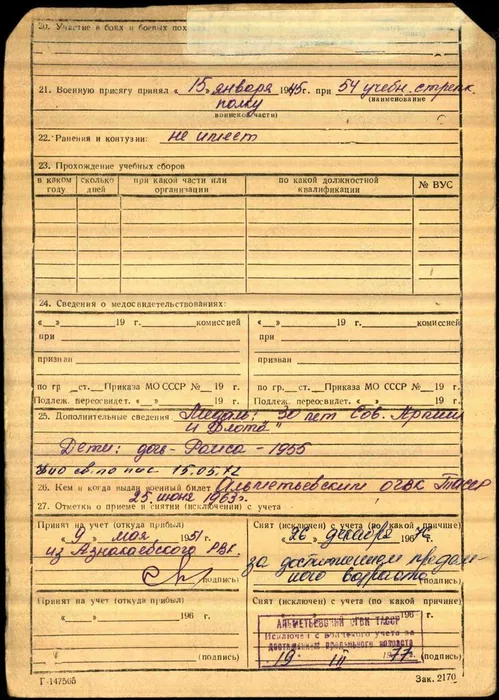 20. Участие в боях и боевых пох
21. Военную присягу принял « 15 » января 1945г. при 54 учебн. стрелк.
(наименование
полку
воинской части)
22. Ранения и контузии: не имеет
23. Прохождение учебных сборов
в каком году | сколько дней | при какой части или организации | по какой должностной квалификации | № ВУС
24. Сведения о медосвидетельствованиях:
«__»________19 г.______комиссией «__»________19 г.______комиссией
при при
признан признан
по гр__ст.__Приказа МО СССР №__19 г. по гр.__ст.__Приказа МО СССР №__19 г.
Подлеж. переосвидет. «__»______19 г. Подлеж. переосвидет. «__»______19 г.
25. Дополнительные сведения Медаль: "30 лет Сов. Армии
и Флота"
Дети: дочь - Раиса - 1955
15.05.72
26. Кем и когда выдан военный билет Альметьевским ОГВК ТАССР
25 июня 1963г.
27. Отметки о приеме и снятии (исключении) с учета
Принят на учет (откуда прибыл) Снят (исключен) с учета (по какой причине)
« 9 » мая 1951г. « 26 » декабря 1967
из Азнакаевского РВК. за достижением предель-
ного возраста
(подпись) (подпись)
Принят на учет (откуда прибыл) Снят (исключен) с учета (по какой причине)
«__»________196 г. 196
АЛЬМЕТЬЕВСКИЙ ОГВК ТАССР
Исключен с воинского учета за
достижением предельного возраста
19 III 1977г.
(подпись) (подпись)
Г-147565 Зак. 2170